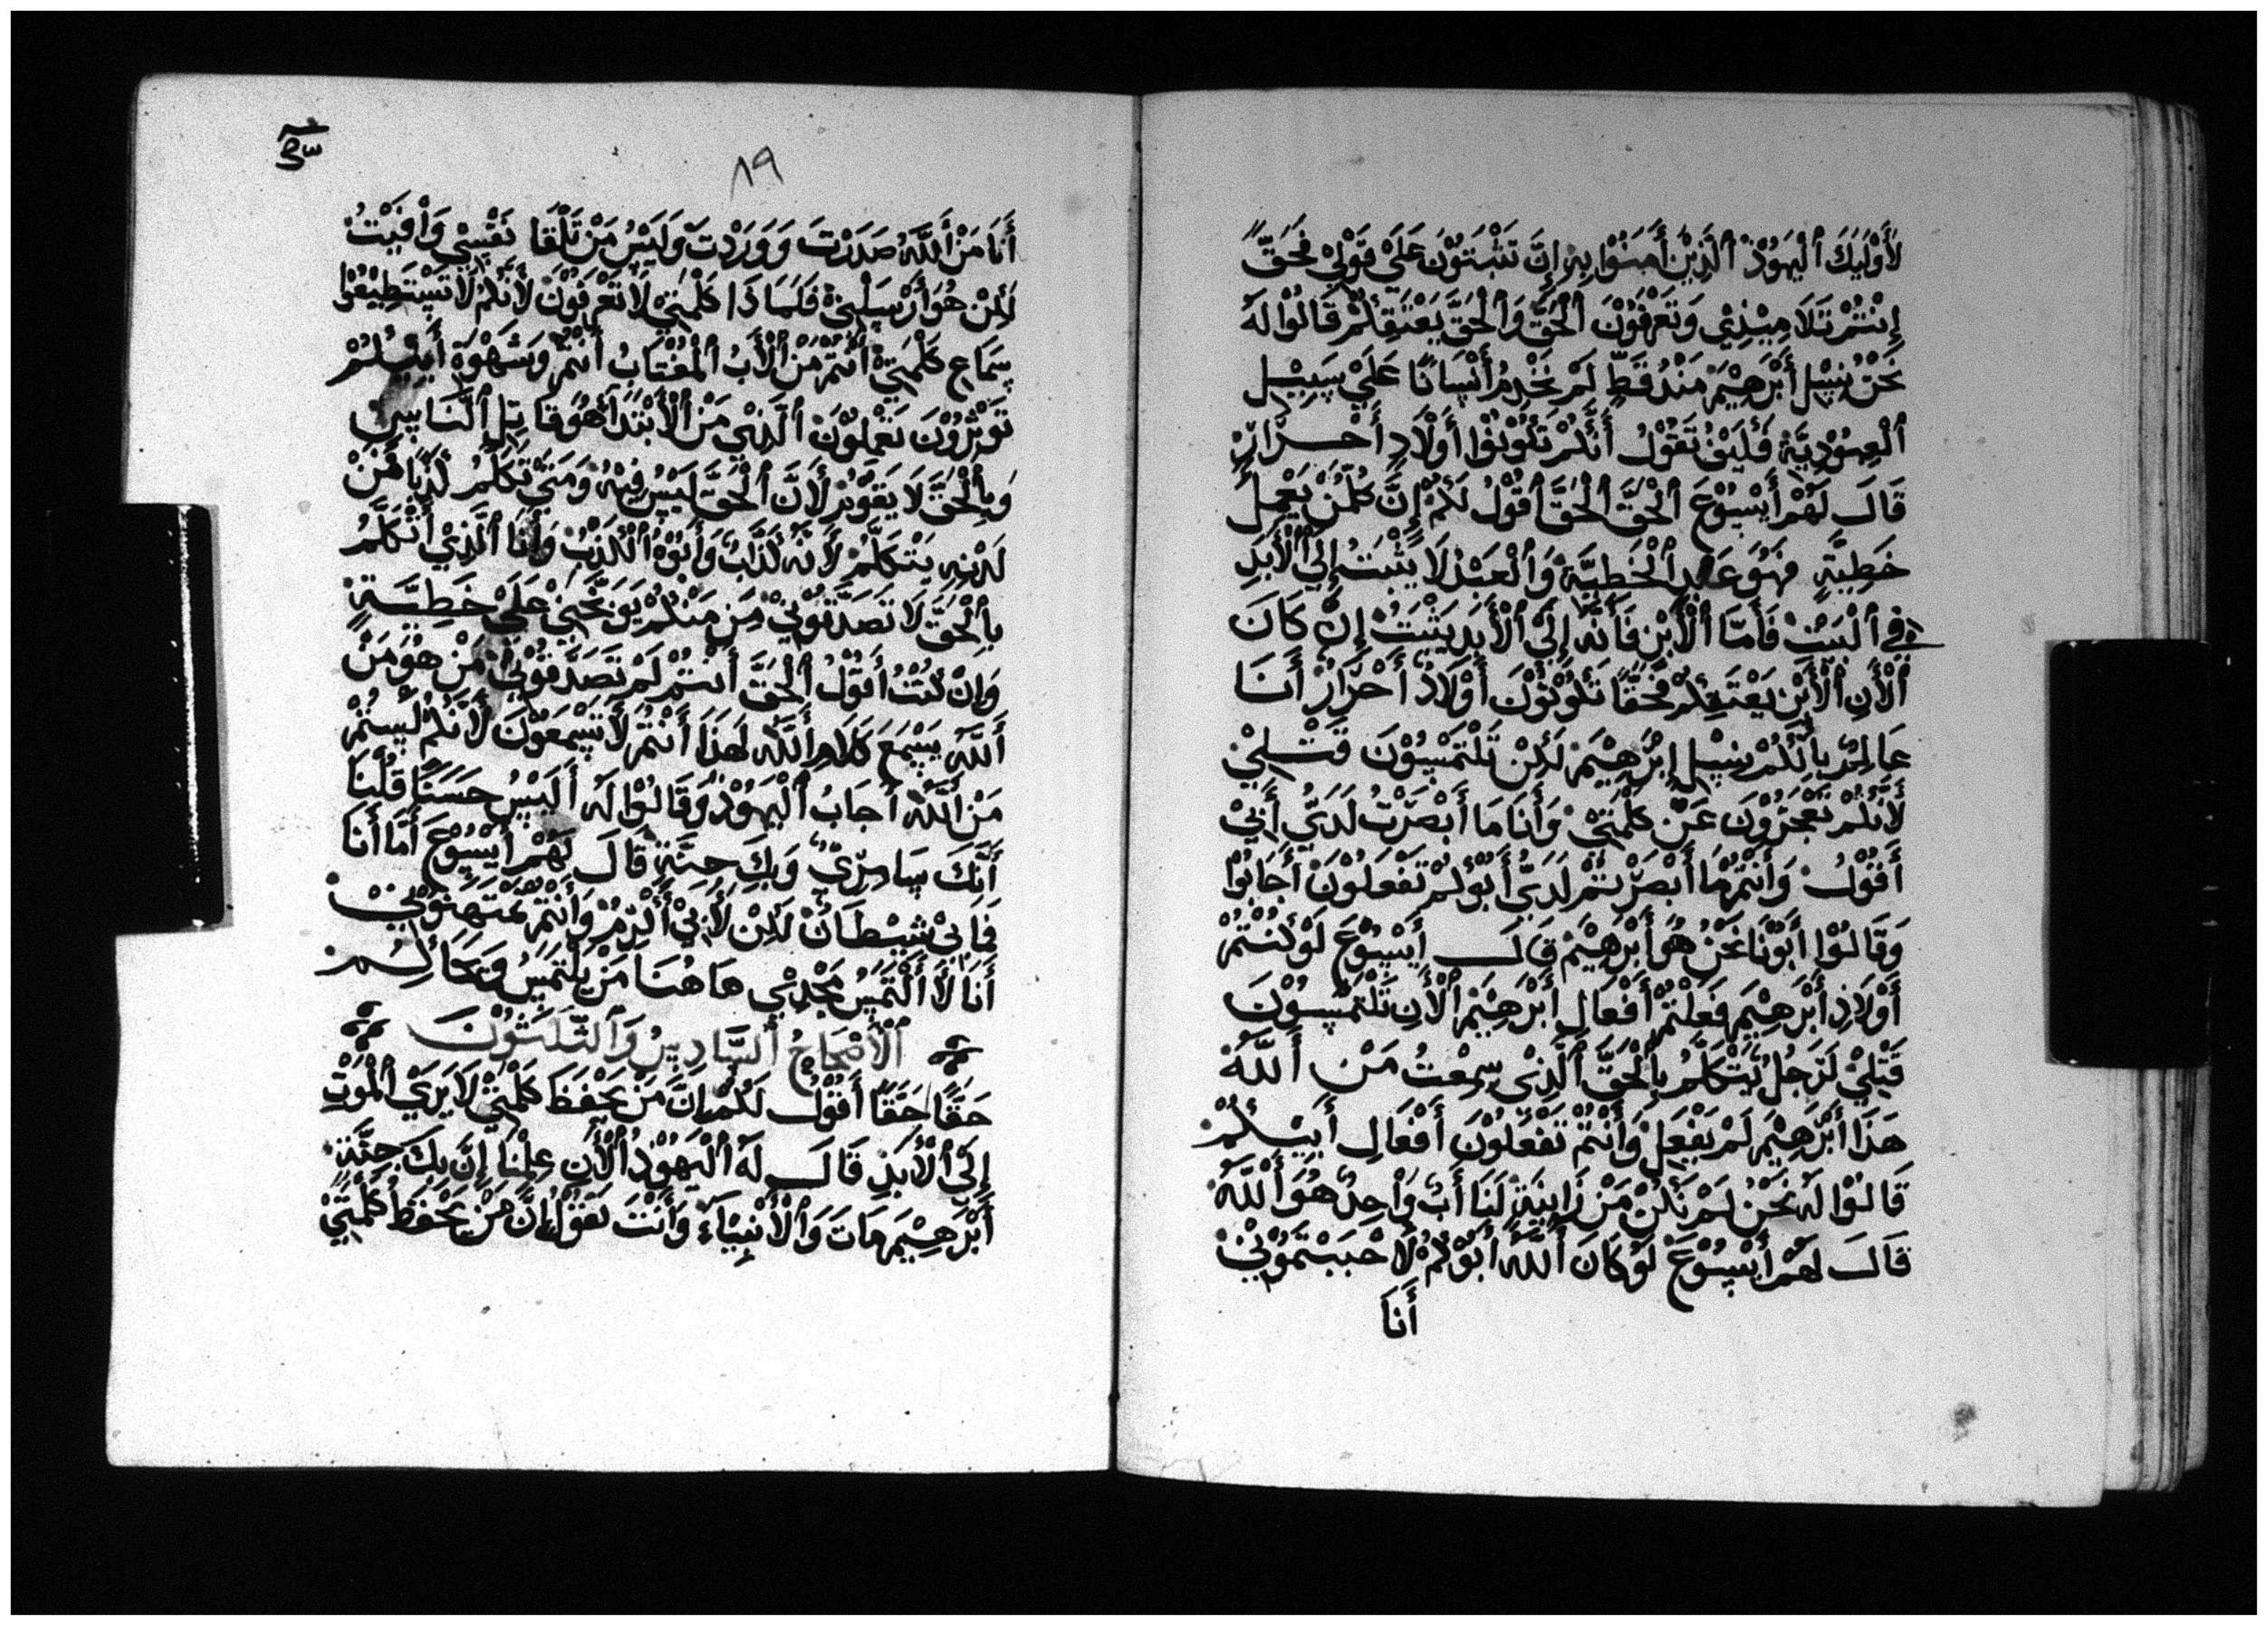 لأولَيك اليهود الذين أمنوا به إن تثبتون على قولي فحقً
إنتم تلاميذي وتعرفون الحق والحق يعتقكم قالوا له
نحن نسل أبرهيم منذ قط لم نخدم أنسانًا على سبيل
العبودية فكيف تقول أنكم تكونوا أولاد أحرار
قال لهم أيسوع الحق الحق أقول لكم إن كلمن يعمل
خطية فهو عبد الخطية والعبد لا يثبت إلى الأبد
في البيت فأما الأبن فأنه إلى الأبد يثبت إن كان
الأن الأبن يعتقكم فحقًا تكونون أولاد أحرار أنا
عالم بأنكم نسل إبرهيم لكن تلتمسون قتلي
لأنكم تعجزون عن كلمتي وأنا ما أبصرت لدي أبي
أقول وأنتم ما أبصرتم لدي أبوكم تفعلون أجابوا
وقالوا أبونا نحن هو أبرهيم قال أيسوع لو كنتم
أولاد أبرهيم فعلتم أفعال أبرهيم الأن تلتمسون
قتلي لرجل يتكلم بالحق الذي سمعت من الله
هذا أبرهيم لم يفعل وأنتم تفعلون أفعال أبيكم
قالوا له نحن لم نكن من زانية لنا أب واحد هو الله
قال لهم أيسوع لو كان الله أبوكم لاحببتموني
أنا
١٩
أنا من الله صدرت ووردت وليس من تلقا نفسي وافيت
لكن هو أرسلني فلماذا كلمتي لا تعرفون لأنكم لا تستطيعوا
سماع كلمتي أنتم من الأب المغتاب أنتم وشهوة أبيكم
توثرون تعملون الذي من الأبتدا هو قاتل الناس
وبالحق لا يقوم لأن الحق ليس فيه ومتي تكلم كذبًا فمن
لدنه يتكلم لأنه كذاب وأبو الكذب وأنا الذي أتكلم
بالحق لا تصدقوني من منكم يوبخني على خطية
وإن كنت أقول الحق أنتم لم تصدقوني من هو من
الله يسمع كلام الله لهذا أنتم لا تسمعون لأنكم ليستم
من الله أجاب اليهود وقالوا له أليس حسنًا قلنا
أنك سامري وبك جنة قال لهم أيسوع أما أنا
فما بي شيطان لكن لأبي أكرم وأنتم تمتهنوني
أنا لا ألتمس مجدي هاهنا من يلتمس ويحاكم
الأصحاح السادس والثلثون
حقًا حقًا أقول لكم إن من يحفظ كلمتي لا يري الموت
إلى الأبد قال له اليهود الأن علمنا إن بك جنة
أبرهيم مات والأنبياء وأنت تقول إن من يحفظ كلمتي